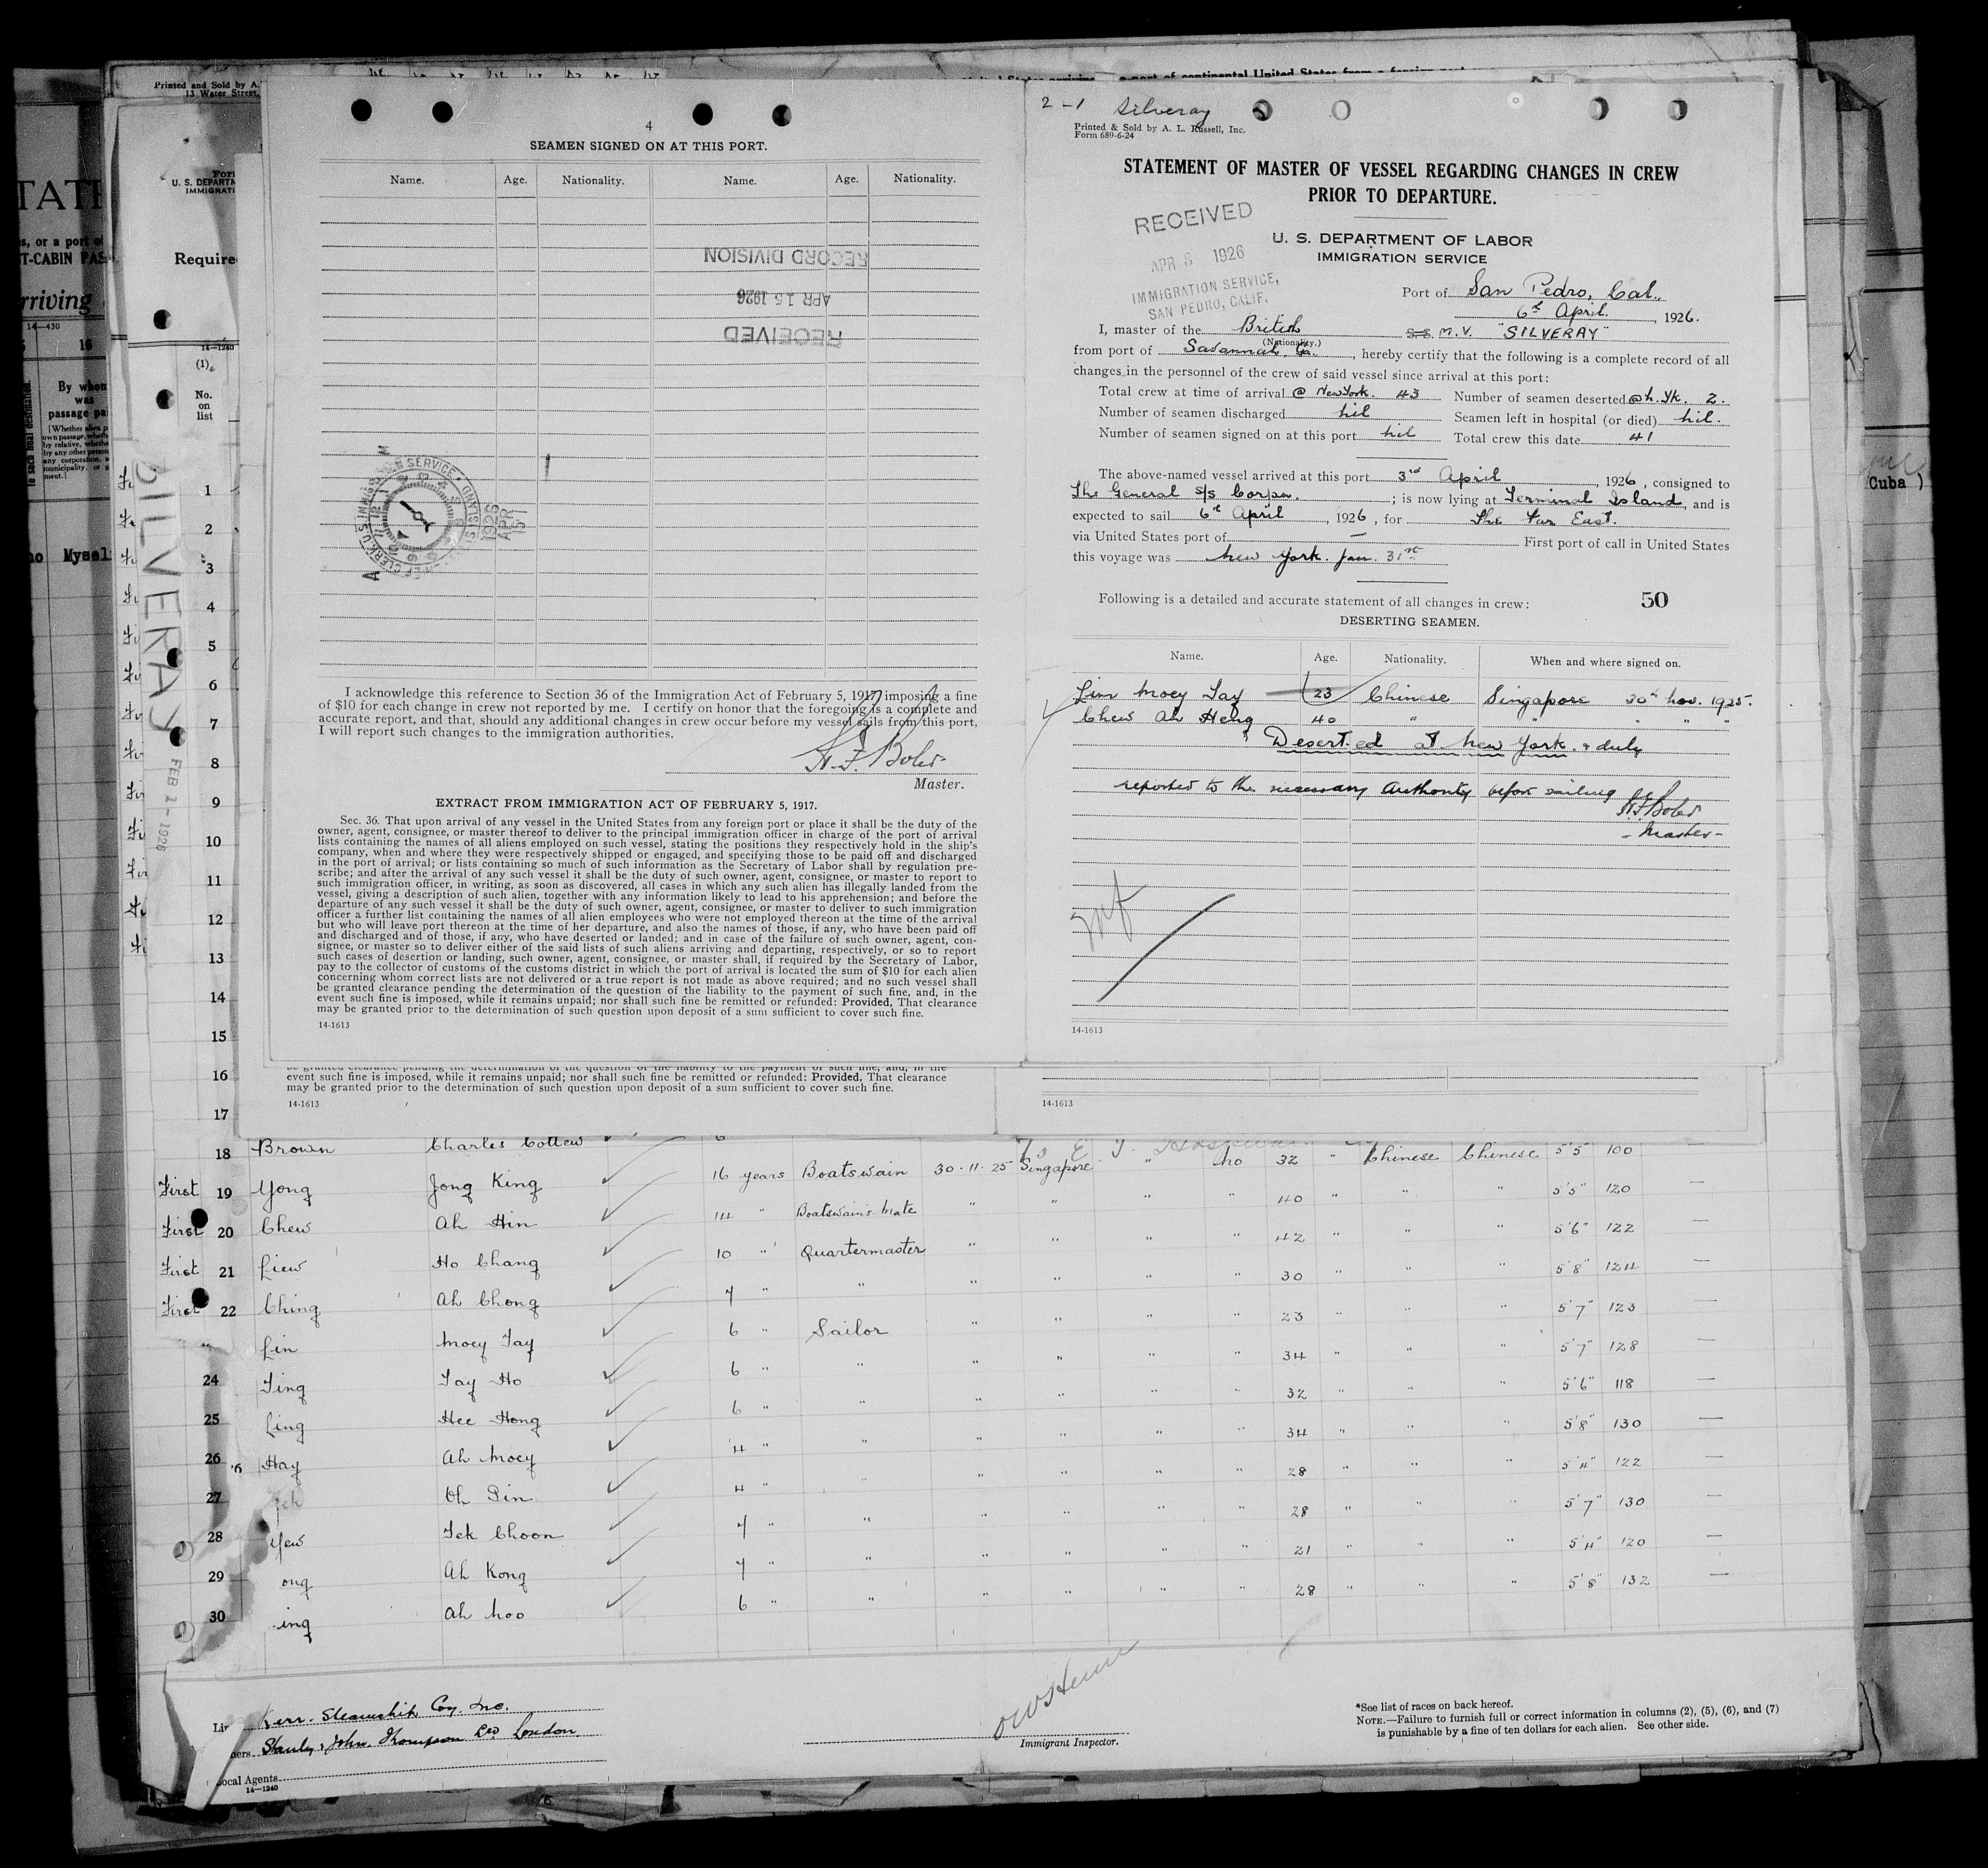 Printed and Sold by A.
13 Water Street,
4
SEAMEN SIGNED ON AT THIS PORT.
Name. Age. Nationality. Name. Age. Nationality.
RECORD DIVISION
APR 15 1926
RECEIVED
I acknowledge this reference to Section 36 of the Immigration Act of February 5, 1917, imposing a fine
of $10 for each change in crew not reported by me. I certify on honor that the foregoing is a complete and
accurate report, and that, should any additional changes in crew occur before my vessel sails from this port,
I will report such changes to the immigration authorities.
Master.
EXTRACT FROM IMMIGRATION ACT OF FEBRUARY 5, 1917.
Sec. 36. That upon arrival of any vessel in the United States from any foreign port or place it shall be the duty of the
owner, agent, consignee, or master thereof to deliver to the principal immigration officer in charge of the port of arrival
lists containing the names of all aliens employed on such vessel, stating the positions they respectively hold in the ship's
company, when and where they were respectively shipped or engaged, and specifying those to be paid off and discharged
in the port of arrival; or lists containing so much of such information as the Secretary of Labor shall by regulation pre-
scribe; and after the arrival of any such vessel it shall be the duty of such owner, agent, consignee, or master to report to
such immigration officer, in writing, as soon as discovered, all cases in which any such alien has illegally landed from the
vessel, giving a description of such alien, together with any information likely to lead to his apprehension; and before the
departure of any such vessel it shall be the duty of such owner, agent, consignee, or master to deliver to such immigration
officer a further list containing the names of all alien employees who were not employed thereon at the time of the arrival
but who will leave port thereon at the time of her departure, and also the names of those, if any, who have been paid off
and discharged and of those, if any, who have deserted or landed; and in case of the failure of such owner, agent, con-
signee, or master so to deliver either of the said lists of such aliens arriving and departing, respectively, or so to report
such cases of desertion or landing, such owner, agent, consignee, or master shall, if required by the Secretary of Labor,
pay to the collector of customs of the customs district in which the port of arrival is located the sum of $10 for each alien
concerning whom correct lists are not delivered or a true report is not made as above required; and no such vessel shall
be granted clearance pending the determination of the question of the liability to the payment of such fine, and, in the
event such fine is imposed, while it remains unpaid; nor shall such fine be remitted or refunded: Provided, That clearance
may be granted prior to the determination of such question upon deposit of a sum sufficient to cover such fine.
14-1613
2-1 Silveray
Printed & Sold by A. L. Russell, Inc.
Form 689-6-24
STATEMENT OF MASTER OF VESSEL REGARDING CHANGES IN CREW
PRIOR TO DEPARTURE.
RECEIVED
APR 8 1926
IMMIGRATION SERVICE,
SAN PEDRO, CALIF.
U. S. DEPARTMENT OF LABOR
IMMIGRATION SERVICE
Port of San Pedro, Cal.
6th April, 1926.
I, master of the British S.S. M.V. "SILVERAY"
(Nationality.)
from port of Savannah, Ga., hereby certify that the following is a complete record of all
changes in the personnel of the crew of said vessel since arrival at this port:
Total crew at time of arrival @ New York. 43 Number of seamen deserted @ N. Yk. 2.
Number of seamen discharged nil Seamen left in hospital (or died) nil.
Number of seamen signed on at this port nil Total crew this date 41
The above-named vessel arrived at this port 3rd April, 1926, consigned to
The General S/S Corpn.; is now lying at Terminal Island, and is
expected to sail 6th April, 1926, for The Far East.
via United States port of — First port of call in United States
this voyage was New York. Jan. 31st
Following is a detailed and accurate statement of all changes in crew: 50
DESERTING SEAMEN.
Name. Age. Nationality. When and where signed on.
Lim Moey Tay 23 Chinese Singapore 30th Nov. 1925.
Chew Ah Heng 40 " " " " "
Deserted at New York & duly
reported to the necessary Authority before sailing
Master
14-1613
event such fine is imposed, while it remains unpaid; nor shall such fine be remitted or refunded: Provided, That clearance
may be granted prior to the determination of such question upon deposit of a sum sufficient to cover such fine.
14-1613
14-1613
SILVERAY
FEB 1 - 1926
Require
14-1240
(1)
No.
on
list
1
2
3
4
5
6
7
8
9
10
11
12
13
14
15
16
17
18 Brown Charles
First 19 Yong Jong King 16 years Boatswain 30·11·25 Singapore " No 32 " Chinese Chinese 5'5" 100
First 20 Chew Ah Hin 14 " Boatswain's Mate " " " " 40 " " " 5'5" 120 —
First 21 Liew Ho Chang 10 " Quartermaster " " " " 42 " " " 5'6" 122 —
First 22 Ching Ah Chong 7 " " " " " " 30 " " " 5'8" 124 —
Lin Moey Tay 6 " Sailor " " " " 23 " " " 5'7" 123 —
24 Ting Tay Ho 6 " " " " " " 34 " " " 5'7" 128 —
25 Ling Hee Hong 6 " " " " " " 32 " " " 5'6" 118 —
26 Hay Ah Moey 4 " " " " " " 34 " " " 5'8" 130 —
27 Oh Sin 4 " " " " " " 28 " " " 5'4" 122 —
28 Yew Tek Choon 7 " " " " " " 28 " " " 5'7" 130 —
29 ong Ah Kong 7 " " " " " " 21 " " " 5'4" 120 —
30 ing Ah Noo 6 " " " " " " 28 " " " 5'8" 132 —
Kerr Steamship Coy. Inc.
Stanley & John Thompson Ltd London
ocal Agents
14—1240
Immigrant Inspector.
*See list of races on back hereof.
NOTE.—Failure to furnish full or correct information in columns (2), (5), (6), and (7)
is punishable by a fine of ten dollars for each alien. See other side.
Cuba )